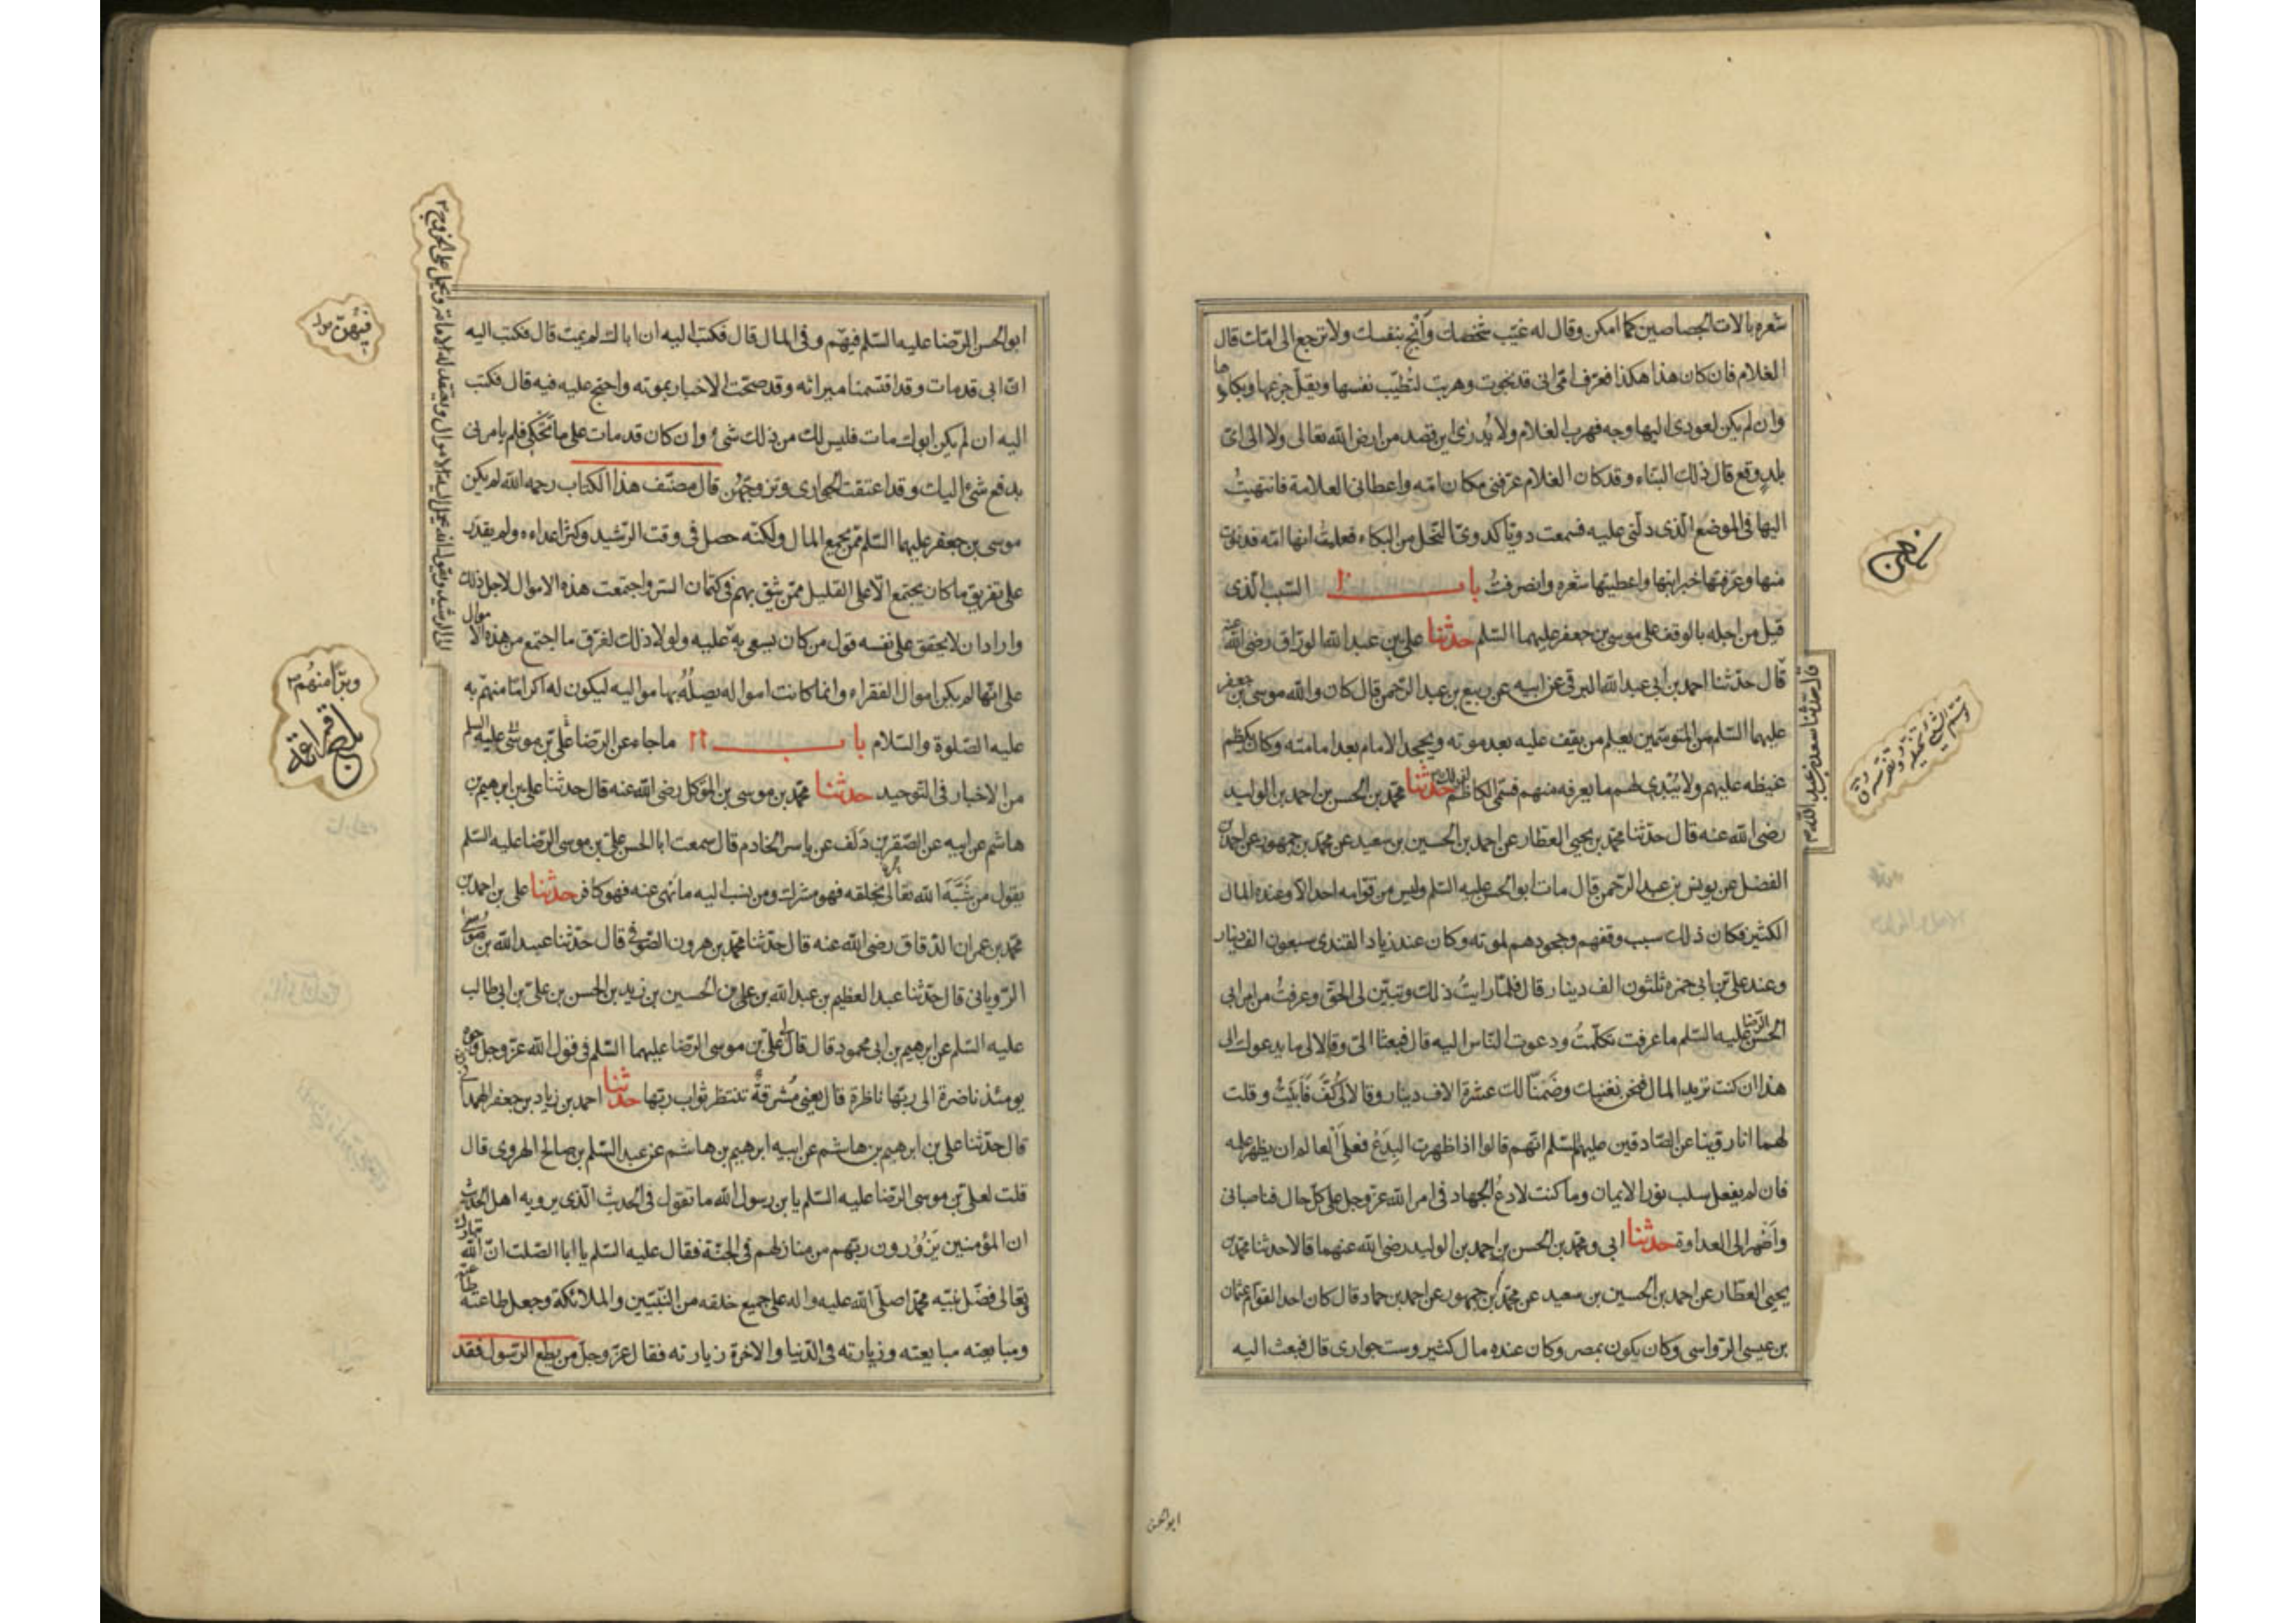 شعره بالات الجصاصين كما امكن وقال له غيّب شخصك وأنج بنفسك ولا ترجع الى امّك قال
الغلام فان كان هذا هكذا فعرّف امّى انى قد نجوت وهربت لتطيب نفسها ويقلّ جزعها وبكاؤها
وان لم يكن لعودى اليها وجه فهرب الغلام ولا يُدرى اين قصد من ارض الله تعالى ولا الى اىّ
بلدٍ وقع قال ذلك البنّاء وقد كان الغلام عرّفنى مكان امّه واعطانى العلامة فانتهيتُ
اليها فى الموضع الّذى دلّنى عليه فسمعت دويّا كدوىّ النحل من البكاء فعلمتُ انها امّه فدنوت
منها وعرّفتها خبر ابنها واعطيتها شعره وانصرفتُ باب ١٠ السّبب الّذى
قيل من اجله بالوقف على موسى بن جعفر عليهما السّلم حدّثنا على بن عبد الله الورّاق رضى الله عنه
قال حدّثنا سعد بن عبد الله
قال حدّثنا احمد بن ابى عبد الله البرقى عن ابيه عن ربيع بن عبد الرّحمن قال كان والله موسى بن جعفر
عليهما السّلم من المتوسّمين يعلم من يقف عليه بعد موته ويجحد الامام بعد امامته وكان يكظم
غيظه عليهم ولا يُبدى لهم ما يعرفه منهم فسمّى الكاظم لذلك حدّثنا محمّد بن الحسن بن احمد بن الوليد
رضى الله عنه قال حدّثنا محمّد بن يحيى العطّار عن احمد بن الحسين بن سعيد عن محمّد بن جمهور عن احمد بن
الفضل عن يونس بن عبد الرّحمن قال مات ابو الحسن عليه السّلم وليس من قوّامه احد الّا وعنده المال
الكثير فكان ذلك سبب وقفهم وجحودهم لموته وكان عند زياد القندى سبعون الف دينار
وعند علىّ بن ابى حمزة ثلثون الف دينار قال فلمّا رايتُ ذلك وتبيّن لى الحقّ وعرفتُ من امر ابى
الحسن الرّضا عليه السّلم ما عرفت تكلّمتُ ودعوت النّاس اليه قال فبعثا الىّ وقالا لى ما يدعوك الى
هذا ان كنت تريد المال فنحن نغنيك وضَمِنّا لك عشرة الاف دينار وقالا لى كُفَّ فأبَيتُ وقلت
لهما انا روّينا عن الصّادقين عليهم السّلم انّهم قالوا اذا ظهرت البِدَع فعلى العالم ان يظهر علمه
فان لم يفعل سلب نور الايمان وما كنت لادع الجهاد فى امر الله عزّ وجل على كلّ حال فناصبانى
واضمرا لى العداوة حدّثنا ابى ومحمّد بن الحسن بن احمد بن الوليد رضى الله عنهما قالا حدثنا محمّد بن
يحيى العطّار عن احمد بن الحسين بن سعيد عن محمّد بن جمهور عن احمد بن حماد قال كان احد القوّام عثمان
بن عيسى الرّواسى وكان يكون بمصر وكان عنده مال كثير وست جوارى قال فبعث اليه
ابو الحسن
ابو الحسن الرّضا عليه السّلم فيهنّ وفى المال قال فكتب اليه ان اباك لم يمت قال فكتب اليه
انّ ابى قد مات وقد اقتسمنا ميراثه وقد صحّت الاخبار بموته واحتج عليه فيه قال فكتب
اليه ان لم يكن ابوك مات فليس لك من ذلك شىء وان كان قد مات على ما تحكى فلم يامرنى
بدفع شىء اليك وقد اعتقت الجوارى وتزوجتهُن قال مصنّف هذا الكتاب رحمه الله لم يكن
موسى بن جعفر عليهما السّلم ممّن يجمع المال ولكنّه حصل فى وقت الرّشيد وكثر اعداءه ولم يقدر
على تفريق ما كان يجتمع الّا على القليل ممّن يثق بهم فى كتمان السّر واجتمعت هذه الاموال لاجل ذلك
واراد ان لا يحقق على نفسه قول من كان يسعى به
الى الرشيد ويقول انه يحمل اليه الاموال ويعتقد له الامامة ويحمل على الخروج
عليه ولولا ذلك لفرّق ما اجتمع من هذه الاموال
على انّها لم يكن اموال الفقراء وانما كانت امواله يصله بها مواليه ليكون له اكراما منهم به
عليه الصّلوة والسّلام باب ١١ ما جاء عن الرّضا علىّ بن موسى عليه السلم
من الاخبار فى التّوحيد حدثنا محمّد بن موسى بن المتوكل رضى الله عنه قال حدثنا على بن ابرهيم بن
هاشم عن ابيه عن الصّقر بن دَلَف عن ياسر الخادم قال سمعت ابا الحسن علىّ بن موسى الرّضا عليه السّلم
يقول من شَبَّهَ الله تعالى بخلقه فهو مشرك ومن نسب اليه ما نهى عنه فهو كافر حدّثنا على بن احمد بن
محمّد بن عمران الدّقاق رضى الله عنه قال حدّثنا محمّد بن هرون الصّوفى قال حدّثنا عبيد الله بن موسى
الرّويانى قال حدّثنا عبد العظيم بن عبد الله بن على بن الحسين بن زيد بن الحسن بن علىّ بن ابى طالب
عليه السّلم عن ابرهيم بن ابى محمود قال قال علىّ بن موسى الرّضا عليهما السّلم فى قول الله عزّ وجل وجوه
يومئذ ناضرة الى ربّها ناظرة قال يعنى مُشرقة تنتظر ثواب ربّها حدّثنا احمد بن زياد بن جعفر الهمدانى
قال حدّثنا على بن ابرهيم بن هاشم عن ابيه ابرهيم بن هاشم عن عبد السّلم بن صالح الهروى قال
قلت لعلىّ بن موسى الرّضا عليه السّلم يا بن رسول الله ما تقول فى الحديث الّذى يرويه اهل الحديث
ان المؤمنين يَزُورون ربّهم من منازلهم فى الجنّة فقال عليه السّلم يا ابا الصّلت انّ الله تبارك
وتعالى فضّل نبيّه محمّدا صلّى الله عليه واله على جميع خلقه من النّبيّين والملائكة وجعل طاعته طاعته
ومبايعته مبايعته وزيارته فى الدّنيا والاخرة زيارته فقال عزّ وجلّ من يطع الرّسول فقد
فيهنّ
وبرّا منهُم
بلغ قراءة